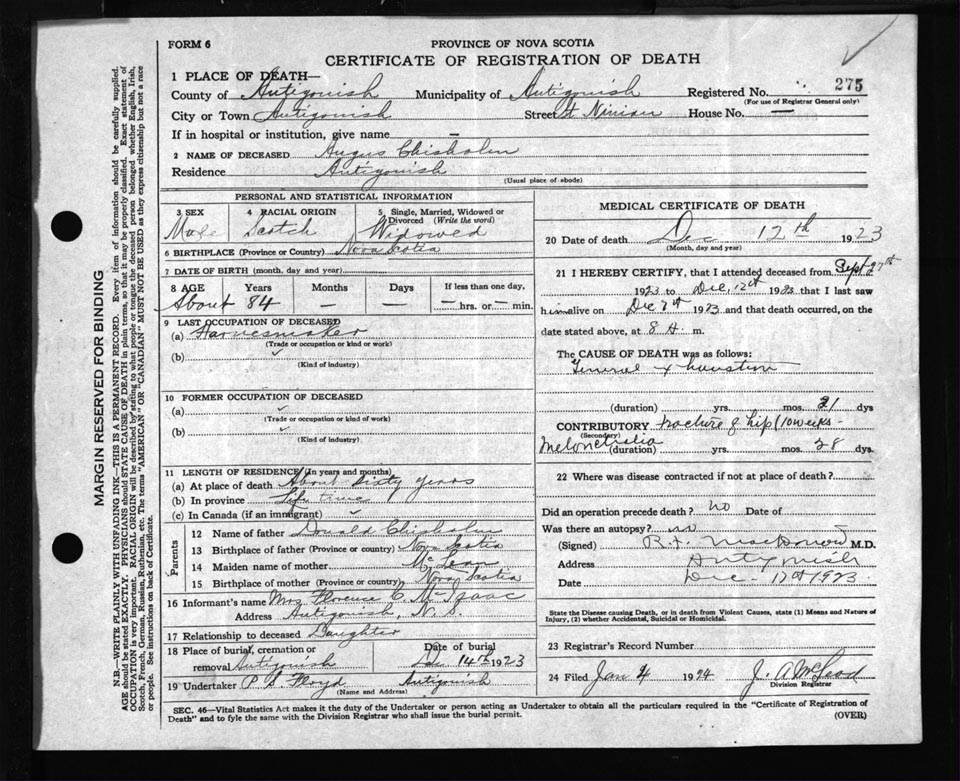 FORM 6
PROVINCE OF NOVA SCOTIA
CERTIFICATE OF REGISTRATION OF DEATH
275
1 PLACE OF DEATH—
County of Antigonish Municipality of Antigonish Registered No.
(For use of Registrar General only)
City or Town Antigonish Street St Ninian House No. —
If in hospital or institution, give name —
2 NAME OF DECEASED Angus Chisholm
Residence Antigonish
(Usual place of abode)
PERSONAL AND STATISTICAL INFORMATION
3 SEX
Male
4 RACIAL ORIGIN
Scotch
5 Single, Married, Widowed or
Divorced (Write the word)
Widowed
6 BIRTHPLACE (Province or Country) Nova Scotia
7 DATE OF BIRTH (month, day and year)
8 AGE Years Months Days If less than one day,
About 84 — — — hrs. or — min.
9 LAST OCCUPATION OF DECEASED
(a) Harnesmaker
(Trade or occupation or kind or work)
(b)
(Kind of industry)
10 FORMER OCCUPATION OF DECEASED
(a)
(Trade or occupation or kind of work)
(b)
(Kind of industry)
11 LENGTH OF RESIDENCE (In years and months)
(a) At place of death About Sixty years
(b) In province Life time
(c) In Canada (if an immigrant)
Parents
12 Name of father Donald Chisholm
13 Birthplace of father (Province or country) Nova Scotia
14 Maiden name of mother McLean
15 Birthplace of mother (Province or country) Nova Scotia
16 Informant's name Mrs Florence C. McIsaac
Address Antigonish, N. S.
17 Relationship to deceased Daughter
18 Place of burial, cremation or
removal Antigonish
Date of burial
Dec 14th 1923
19 Undertaker P S Floyd Antigonish
(Name and Address)
MEDICAL CERTIFICATE OF DEATH
20 Date of death Dec 12th 1923
(Month, day and year)
21 I HEREBY CERTIFY, that I attended deceased from Sept 27th
1923 to Dec. 12th 1923 that I last saw
him alive on Dec 7th 1923 and that death occurred, on the
date stated above, at 8 A. m.
The CAUSE OF DEATH was as follows:
General Exhaustion
(duration) yrs. mos. 21 dys
CONTRIBUTORY fracture of hip (10 weeks -
(Secondary)
(duration) yrs. mos. 28 dys.
22 Where was disease contracted if not at place of death?
Did an operation precede death? no Date of
Was there an autopsy? no
(Signed) M.D.
Address Antigonish
Date Dec - 12th 1923
State the Disease causing Death, or in death from Violent Causes, state (1) Means and Nature of
Injury, (2) whether Accidental, Suicidal or Homicidal.
23 Registrar's Record Number
24 Filed Jan 4 1924
Division Registrar
SEC. 46—Vital Statistics Act makes it the duty of the Undertaker or person acting as Undertaker to obtain all the particulars required in the "Certificate of Registration of
Death" and to fyle the same with the Division Registrar who shall issue the burial permit.
(OVER)
MARGIN RESERVED FOR BINDING
N.B.—WRITE PLAINLY WITH UNFADING INK—THIS IS A PERMANENT RECORD. Every item of information should be carefully supplied.
AGE should be stated EXACTLY. PHYSICIANS should STATE CAUSE OF DEATH in plain terms, so that it may be properly classified. Exact statement of
OCCUPATION is very important. RACIAL ORIGIN will be described by stating to what people or tongue the deceased person belonged whether English, Irish,
Scotch, French, German, Russian, Ruthenian, etc. The terms "AMERICAN" OR "CANADIAN" MUST NOT BE USED as they express citizenship but not a race
or people. See instructions on back of Certificate.